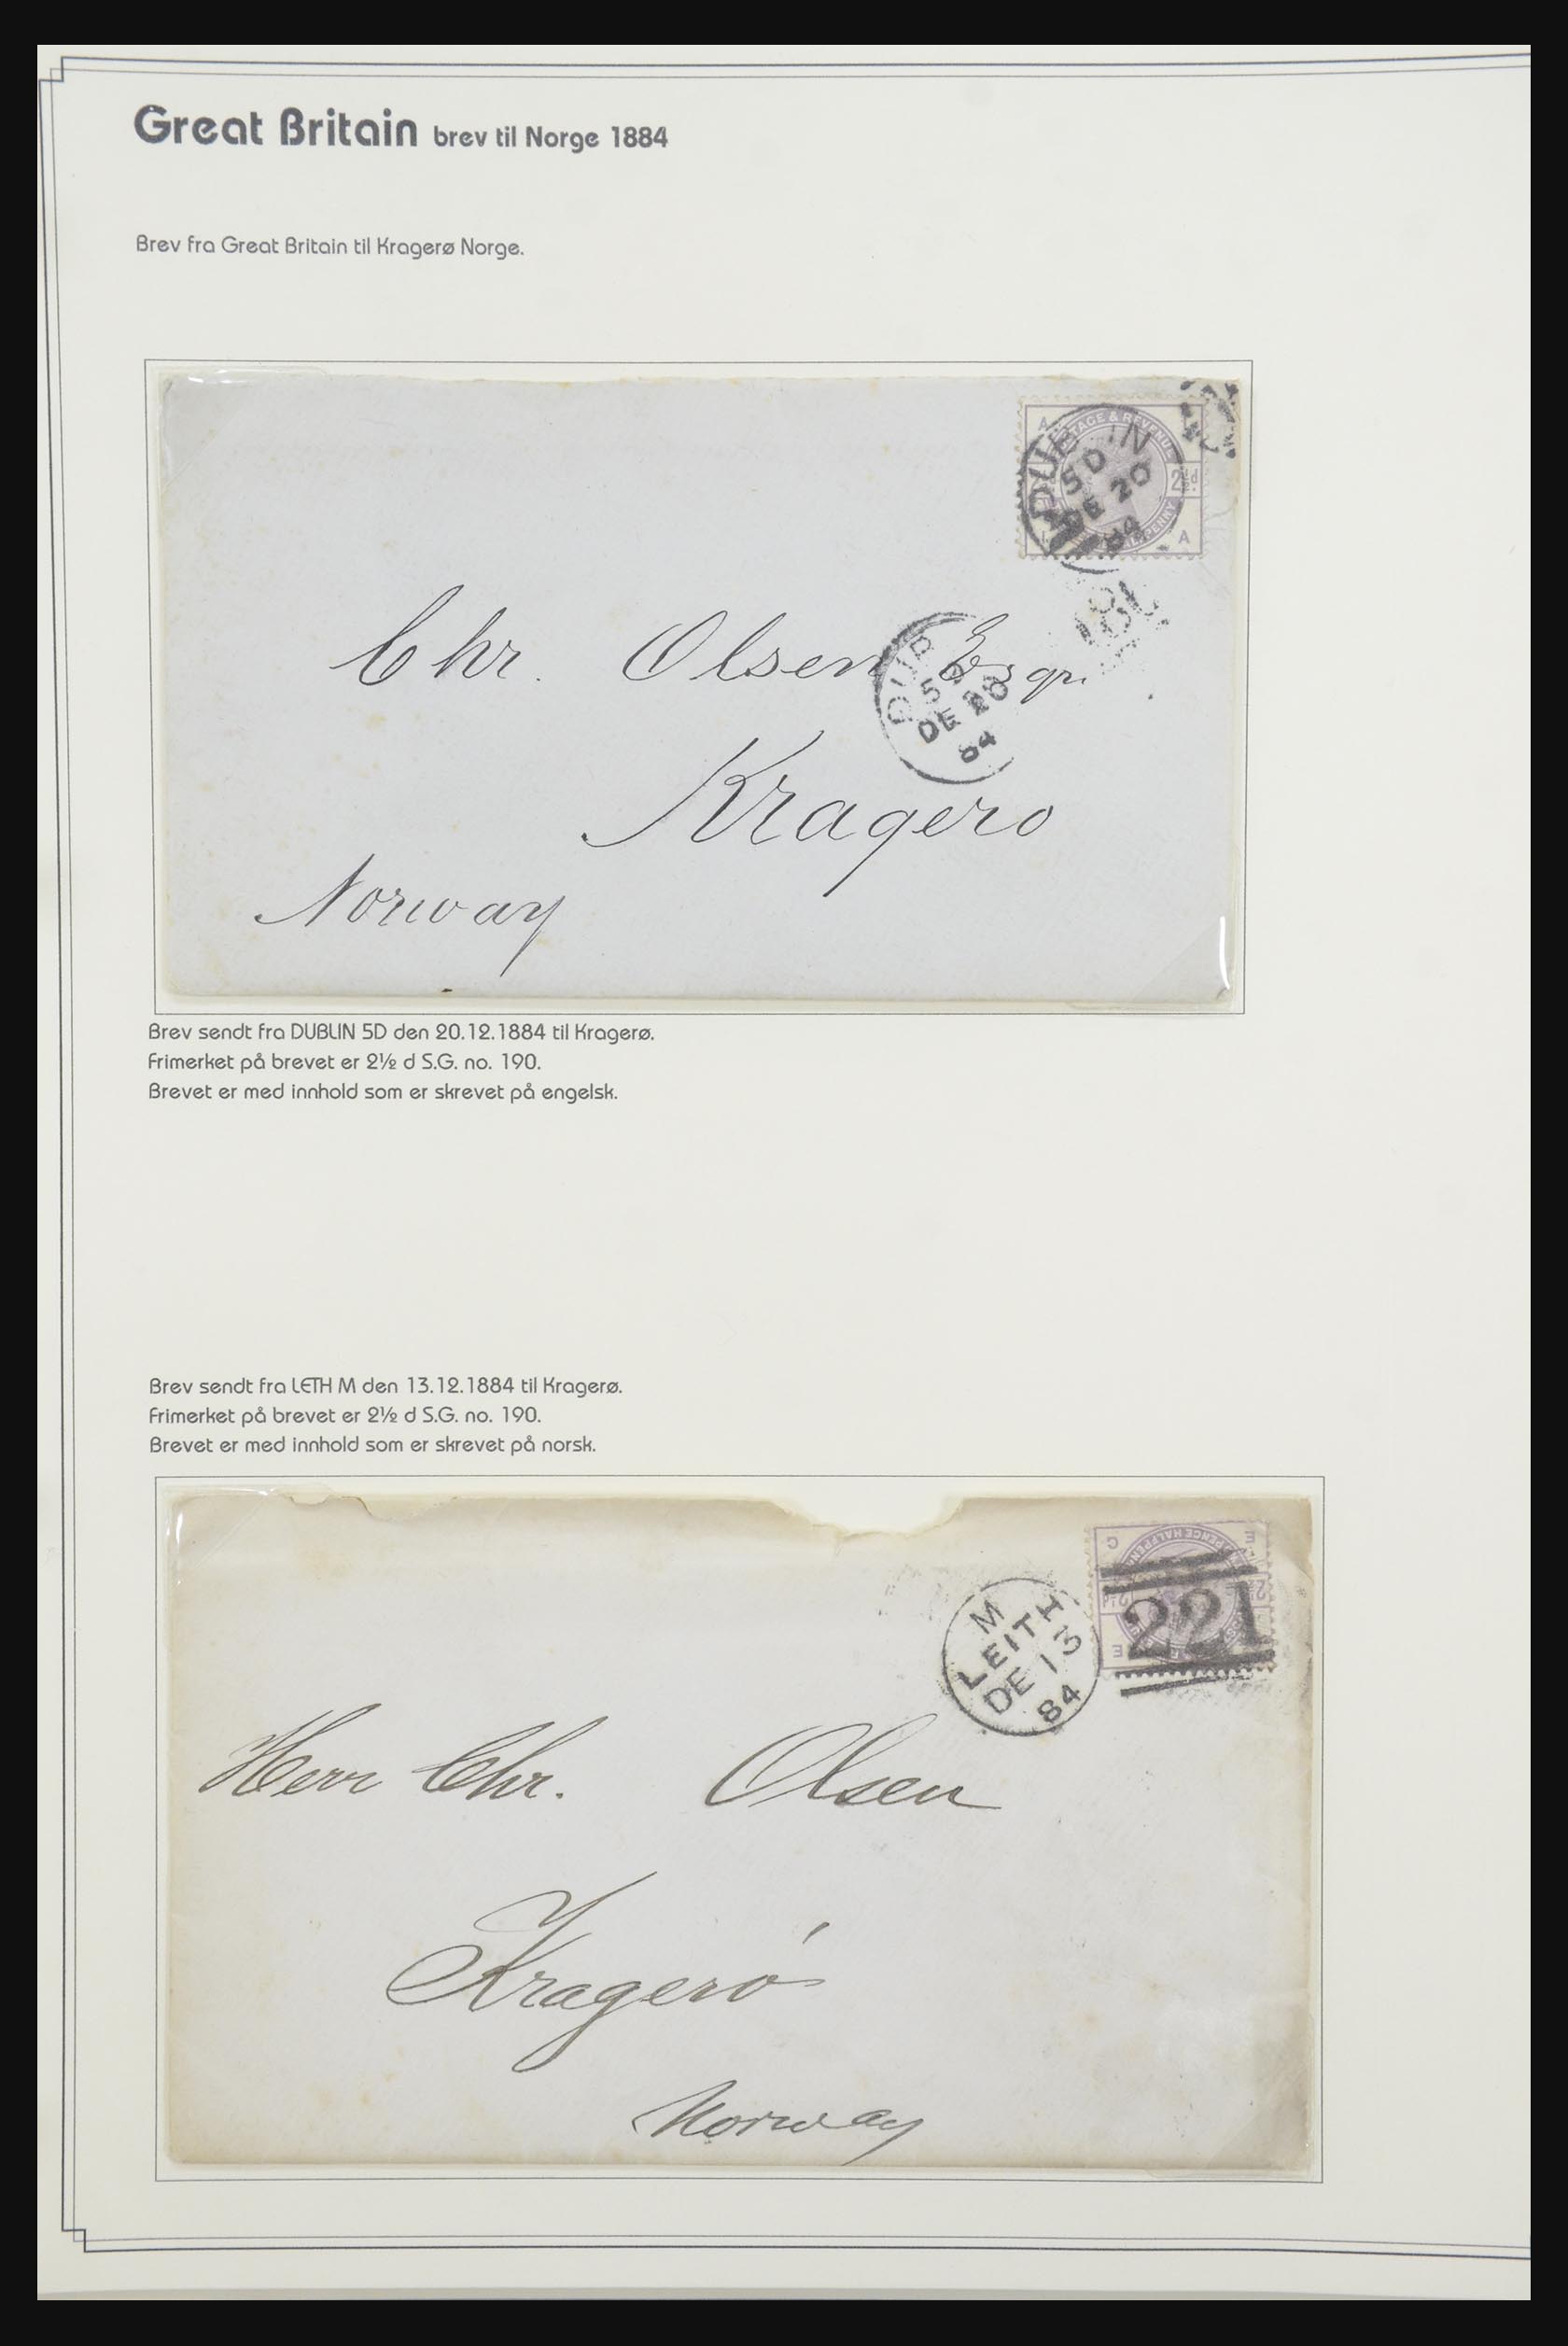 Great Britain brev til Norge 1884
Brev fra Great Britain til Kragerø Norge.
A
POSTAGE & REVENUE
2½d.
A
DUBLIN
5D
DE 20
84
186
DUB
5D
DE 20
84
Chr. Olsen Esqr.
Kragero
Norway
Brev sendt fra DUBLIN 5D den 20.12.1884 til Kragerø.
Frimerket på brevet er 2½ d S.G. no. 190.
Brevet er med innhold som er skrevet på engelsk.
Brev sendt fra LETH M den 13.12.1884 til Kragerø.
Frimerket på brevet er 2½ d S.G. no. 190.
Brevet er med innhold som er skrevet på norsk.
M
LEITH
DE 13
84
221
Herr Chr. Olsen
Kragerö
Norway